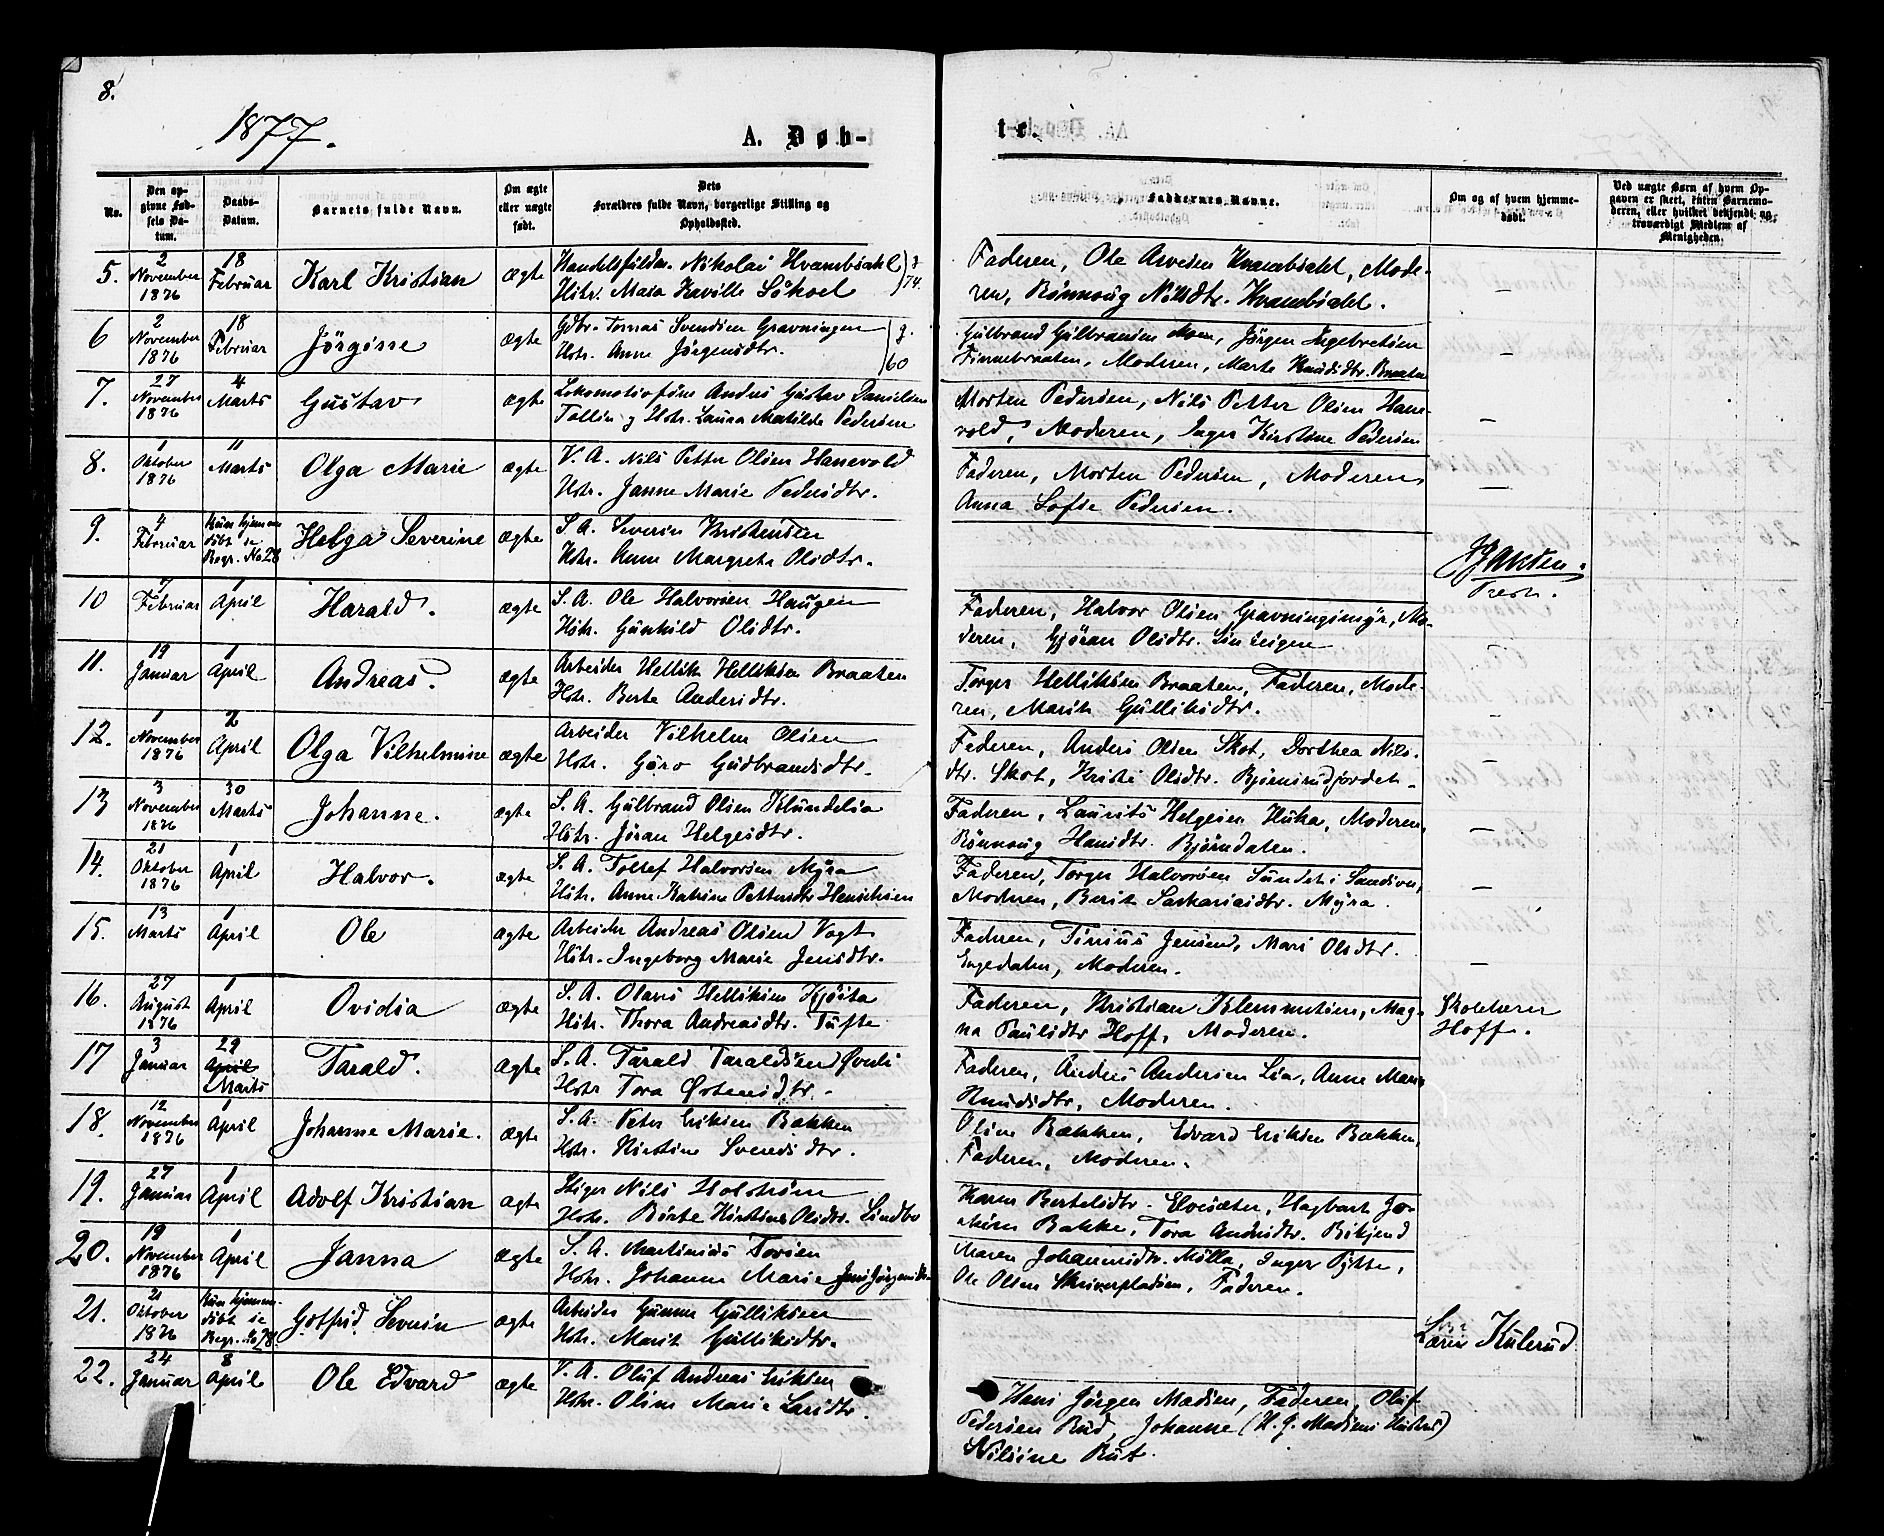 8.
1877.
A. Døb-
te.
No.
Den op-
givne Fød-
sels Da-
tum.
Daabs-
Datum.
Barnets fulde Navn.
Om ægte
eller uægte
født.
Dets
Forældres fulde Navn, borgerlige Stilling og
Opholdssted.
Faddernes Navne.
Om og af hvem hjemme-
døbt.
Ved uægte Børn af hvem Op-
gaven er skeet, enten Barnemo-
deren, eller hvilket bekjendt og
troværdigt Medlem af
Menigheden.
5. 2 November 1876 18 Februar Karl Kristian ægte
Nikolai Hvambsahl
Hstr. Maia
74.
Faderen, Ole Hvambsalet, Mode-
ren, Rønnoug Nilsdtr. Hvambsalet.
–
6 2 November 1876 18 Februar Jörgine ægte
Gdbr. Tomas Svendsen Gravningen
Hstr. Anne Jörgensdtr.
60
Gulbrand Gulbransen Moen, Jörgen Ingebretsen
Finnebraaten, Moderen, Marte Knudsdtr. Braaten
–
7. 27 November 1876 4 Marts Gustav ægte
Anders Gustav Danielsen
Tollin og Hstr. Laura Matilde Pedersen
Morten Pedersen, Nils Petter Olsen Hane-
vold, Moderen, Inger Kirstine Pedersen
–
8. 1 Oktober 1876 11 Marts Olga Marie ægte
V. A. Nils Petter Olsen Hanevold
Hstr. Janne Marie Pedersdtr.
Faderen, Morten Pedersen, Moderen,
Anna Sofie Pedersen.
–
9. 4 Februar Kun hjemme-
døbt se
Begr. No 28 Helga Severine ægte
S. A. Severin Kristensen
Hstr. Anne Margrete Olsdtr.
Jansen.
Prest.
10 7 Februar 1 April Harald. ægte
S. A. Ole Halvorsen Haugen
Hstr. Gunhild Olsdtr.
Faderen, Halvor Olsen Gravningsmyr, Mo-
deren, Gjöran Olsdtr.
11. 19 Januar 1 April Andreas. ægte
Arbeider Hellik Helliksen Braaten
Hstr. Berte Andersdtr.
Torger Helliksen Braaten, Faderen, Mode-
ren, Marit Gulliksdtr.
–
12. 1 November 1876 2 April Olga Vilhelmine ægte
Arbeider Vilhelm Olsen
Hstr. Guro Gudbrandsdtr.
Faderen, Anders Olsen Skot, Dorthea Nils-
dtr. Skot, Kristi Olsdtr. Bjørnsrudjordet.
–
13 3 November 1876 30 Marts Johanne. ægte
S. A. Gulbrand Olsen Klundelia
Hstr. Jöran Helgesdtr.
Faderen, Laurits Helgesen Huka, Moderen,
Rønnoug Hansdtr. Bjørndalen.
–
14. 21 Oktober 1876 1 April Halvor. ægte
S. A. Tollef Halvorsen Myra
Hstr. Anne Katrine Pettersdtr Henriksen
Faderen, Torger Halvorsen Sundet i Sandsver,
Moderen, Berit Sakariasdtr. Myra.
–
15. 13 Marts 1 April Ole ægte
Arbeider Andreas Olsen Vogt
Hstr. Ingeborg Marie Jensdtr.
Faderen, Tinius Jensen, Mari Olsdtr.
Engedalen, Moderen.
–
16. 27 August 1876 1 April Ovidia ægte
S. A. Olaus Helliksen Kjösta
Hstr. Thora Andreasdtr. Tufte
Faderen, Kristian Klemmetsen, Mag-
na Paulsdtr Hoff, Moderen.
Skolelærer
Hoff.
17 3 Januar 29 April
Marts Tarald. ægte
S. A. Tarald Taraldsen Øverli
Hstr Tora Østensdtr.
Faderen, Anders Andersen Lia, Anne Marie
Knudsdtr, Moderen.
18. 12 November 1876 1 April Johanne Marie. ægte
S. A. Peter Eriksen Bakken
Hstr. Kirstine Svendsdtr.
Oline Bakken, Edvard Eriksen Bakken,
Faderen, Moderen.
19. 27 Januar 1 April Adolf Kristian ægte
Stiger Nils Holstrøm
Hstr. Börte Kirstine Olsdtr. Sindbo
Karen Bertelsdtr. Elvesæter, Hagbart Jo-
Bakke, Tora Andersdtr. Bikjend
20. 19 November 1876 1 April Janna ægte
S. A. Martinius Torsen
Hstr. Johanne Marie
Maren Johannesdtr. Mölla, Inger Pytte,
Ole Olsen Skriverpladsen, Faderen.
21. 21 Oktober 1876 Kun hjemme-
døbt se
Begr. No 78. Gotfrid Severin ægte
Arbeider Gunnar Gulliksen
Hstr. Marit Gulliksdtr.
Lærer Kulerud
22. 24 Januar 8 April Ole Edvard ægte
V. A. Oluf Andreas Eriksen
Hstr. Oline Marie Larsdtr.
Hans Jörgen Madsen, Faderen, Oluf
Pedersen Rud, Johanne (H. J. Madsens Hustru)
Nilsine Rut.